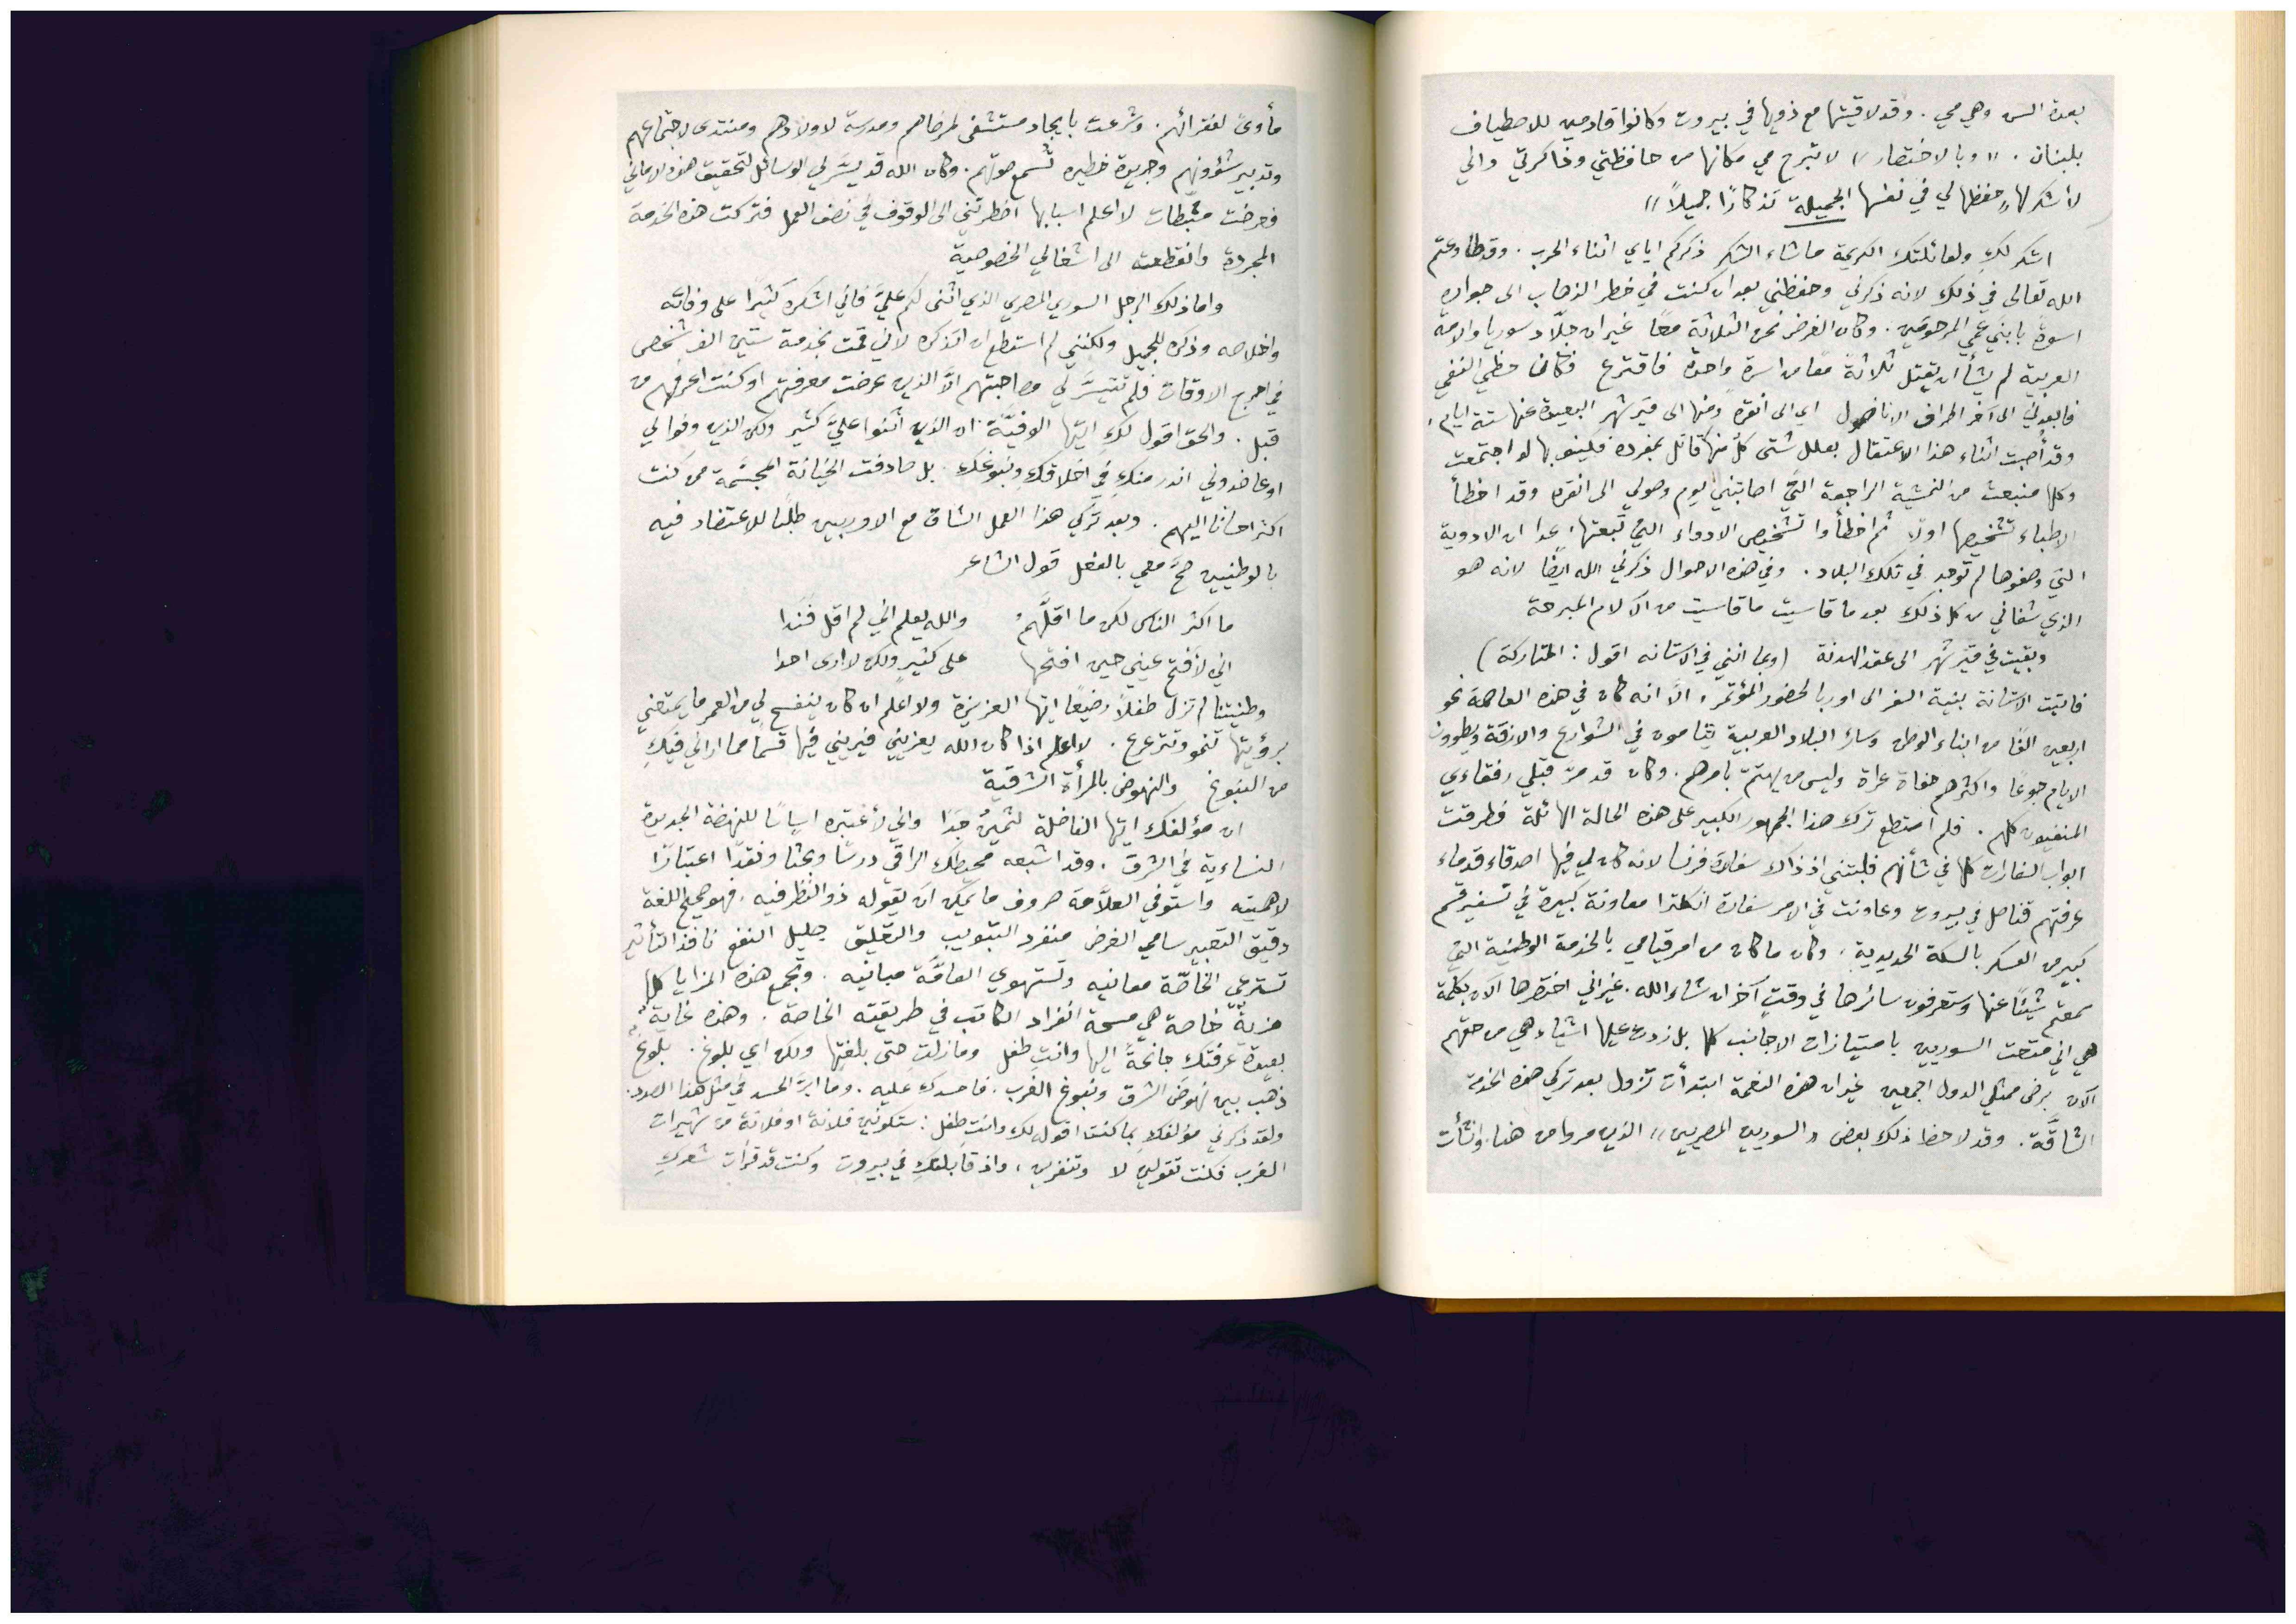 بعدة السن وهي مي . وقد لاقيتها مع ذويها في بيروت وكانوا قادمين للاصطياف
بلبنان . " وبالاختصار " لا تبرح مي مكانها من حافظتي وذاكرتي واني
لأشكر لها حفظها لي في نفسها الجميلة تذكارًا جميلاً "
اشكر لكِ ولعائلتك الكريمة ما شاء الشكر ذكركم اياي اثناء الحرب . وقد طاوعتم
الله تعالى في ذلك لانه ذكرني وحفظني بعد ان كنت في خطر الذهاب الى جواره
اسوةً بابني عمي المرحومَين . وكان الغرض نحن الثلاثة معًا غير ان جلّاد سوريا والامة
العربية لم يشأ ان يقتل ثلاثةً معًا من اسرة واحدة فاقترع فكان حظي النفي
فابعدني الى آخر اطراف الاناضول اي الى انقره ومنها الى قير شهر البعيدة عنها ستة ايام .
وقد أصبت اثناء هذا الاعتقال بعلل شتى كلٌ منها قاتل بمفرده فلينو بها لو اجتمعت
وكلها منبعث من الخمسية الراجعة التي اصابتني يوم وصولي الى انقره وقد اخطأ
الاطباء تشخيصها اولاً ثم اخطأوا تشخيص الادواء التي تبعتها . عدا ان الادوية
التي وصفوها لم توجد في تلك البلاد . وفي هذه الاحوال ذكرني الله ايضًا لانه هو
الذي شفاني من كل ذلك بعد ما قاسيت ما قاسيت من الآلام المبرحة
وبقيت في قير شهر الى عقد الهدنة ( وبما انني في الاستانه اقول : المتاركة )
فاتيت الاستانة بنية السفر الى اوربا لحضور المؤتمر . الّا انه كان في هذه العاصمة نحو
اربعين الفًا من ابناء الوطن وسائر البلاد العربية ينامون في الشوارع والازقة ويطوون
الايام جوعًا واكثرهم حفاة عراة وليس من يهتم بامرهم . وكان قد مرّ قبلي رفقاءي
المنفيون كلهم . فلم استطع ترك هذا الجمهور الكبير على هذه الحالة الهائلة فطرقت
ابواب السفارات كلها في شأنهم فلبتني اذ ذاك سفارة فرنسا لانه كان لي فيها اصدقاء قدماء
عرفتهم قناصل في بيروت وعاونت في الامر سفارة انكلترا معاونة كبيرة في تسفير قسم
كبير من العسكر بالسكة الحديدية . وكان ما كان من امر قيامي بالخدمة الوطنية التي
سمعتم شيئًا عنها وستعرفون سائرها في وقت آخر ان شاء الله . غير اني اختصرها الآن بكلمة
هي اني متّعت السوريين بامتيازات الاجانب كلها بل زدت عليها اشياء هي من حقهم
الآن برضى ممثلي الدول اجمعين غير ان هذه النعمة ابتدأت تزول بعد تركي هذه الخدمة
الشاقّة . وقد لاحظ ذلك بعض " السوريين المصريين " الذين مروا من هنا . وانشأت
مأوىً لفقرائهم . وشرعت بايجاد مستشفى لمرضاهم ومدرسة لاولادهم ومنتدى لاجتماعهم
وتدبير شؤونهم وجريدة خطيره تُسمع صوتهم . وكان الله قد يسَّر لي الوسائل لتحقيق هذه الاماني
فعرضت مثبطات لا اعلم اسبابها اضطرتني الى الوقوف في نصف العمل فتركت هذه الخدمة
المجردة وانقطعت الى اشغالي الخصوصية
واما ذلك الرجل السوري المصري الذي اثنى لكم عليَّ فاني اشكره كثيرًا على وفائه
واخلاصه وذكره للجميل ولكنني لم استطع ان اتذكره لاني قمت بخدمة ستين الف شخص
في احرج الاوقات فلم تتيسَّر لي مصاحبتهم الّا الذين عرضت معرفتهم او كنت اعرفهم من
قبل . والحق اقول لكِ ايتها الوفيَّة ان الذين اثنوا عليَّ كثير ولكن الذين وفوا لي
او عاضدوني اندر منكِ في اخلاقكِ ونبوغك . بل صادفت الخيانة المجسَّمة ممن كنت
اكثر احسانًا اليهم . وبعد تركي هذا العمل الشاق مع الاوربيين طلبًا للاعتضاد فيه
بالوطنيين صحَّ معي بالفعل قول الشاعر
ما اكثر الناس لكن ما اقلَّهمُ والله يعلم اني لم اقل فَنَدا
اني لأفتح عيني حين افتحها على كثير ولكن لا ارى احدا
وطنيتنا لم تزل طفلاً رضيعًا ايتها العزيزة ولا اعلم ان كان ينفسح لي من العمر ما يمتعني
برؤيتها تنمو وتترعرع . لا اعلم اذا كان الله يعزيني فيريني فيها قسمًا مما اراني فيكِ
من النبوغ والنهوض بالمرأة الشرقية
ان مؤلفك ايتها الفاضلة لثمينٌ جدًا واني لأعتبره اساسًا للنهضة الجديدة
النساءية في الشرق . وقد اشبعه محيطك الراقي درسًا وبحثًا ونقدًا اعتبارًا
لاهميته واستوفى العلّامة صروف ما يمكن ان يقوله ذو النظر فيه . فهو صحيح اللغة
دقيق التعبير سامي الغرض منفرد التبويب والتعليق جليل النفع نافذ التأثير
تسترعي الخاصّة معانيه وتستهوي العامّة مبانيه . وتجمع هذه المزايا كلها
مزيةٌ خاصة هي مسحة انفراد الكاتب في طريقته الخاصة . وهذه غايةٌ
بعيدة عرفتك جانحةً اليها وانتِ طفل وما زلتِ حتى بلغتِها ولكن اي بلوغ . بلوغٌ
ذهب بين نهوض الشرق ونبوغ الغرب . فاحسدك عليه . وما ابرَّ الحسد في مثل هذا الصدد .
ولقد ذكرني مؤلفكِ بما كنت اقول لك وانتِ طفل : ستكونين فلانة او فلانة من شهيرات
الغرب فكنت تقولين لا وتنفرين . واذ قابلتكِ في بيروت وكنت قد قرأت شعركِ